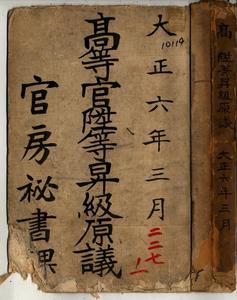 大正六年三月
10114
高等官陞等昇級原議
官房祕書課
二二七
一
高
陞等昇級原議
大正六年三月